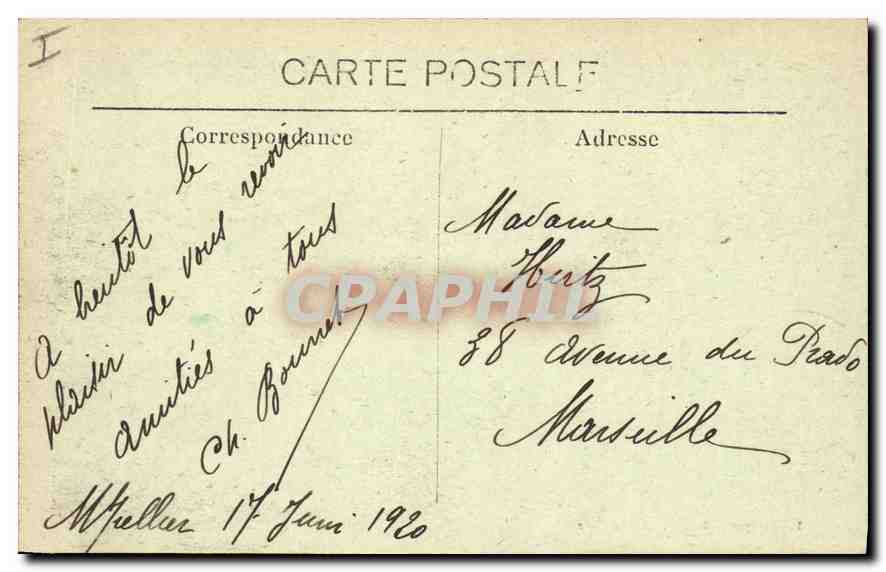 I
CARTE POSTALE
Correspondance
A bientôt le
plaisir de vous revoir
amitiés à tous
Ch. Bonnet
Mpellier 17 Juin 1920
Adresse
Madame
Hertz
38 Avenue du Prado
Marseille
CPAPHIL